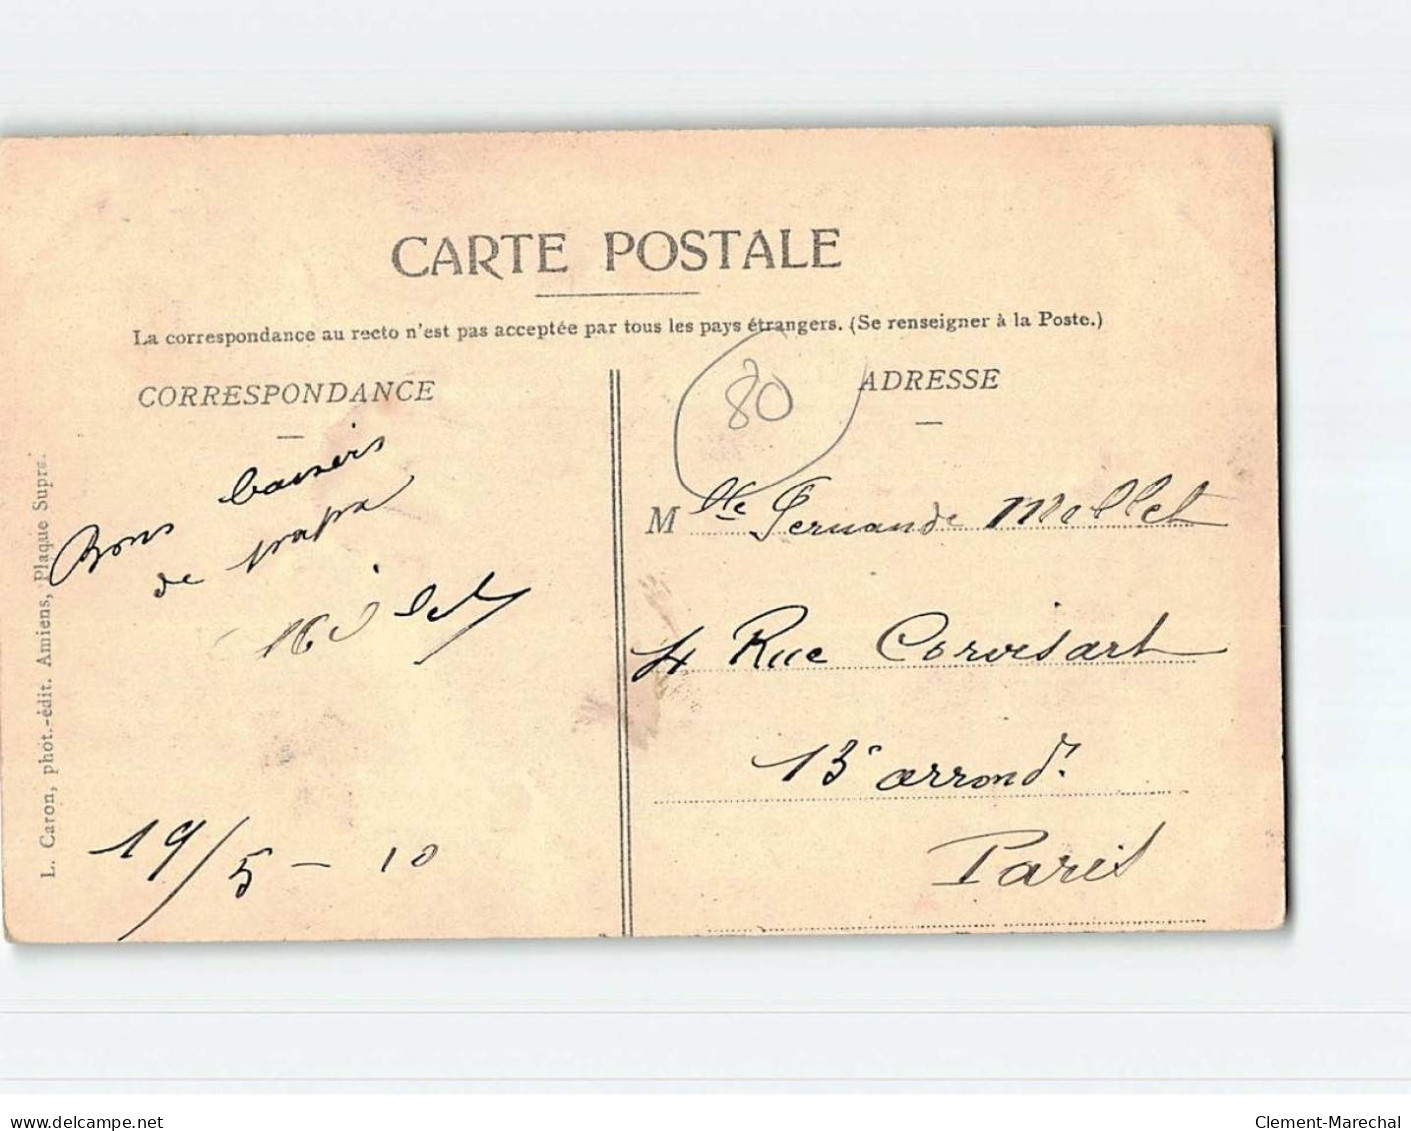 CARTE POSTALE
La correspondance au recto n'est pas acceptée par tous les pays étrangers. (Se renseigner à la Poste.)
CORRESPONDANCE
Bons baisers
de papa
19/5-10
ADRESSE
80
Mlle Fernande Mellet
4 Rue Corvisart
13e arrondt
Paris
L. Caron, phot.-édit. Amiens, Plaque Supra.
www.delcampe.net
Clement-Marechal